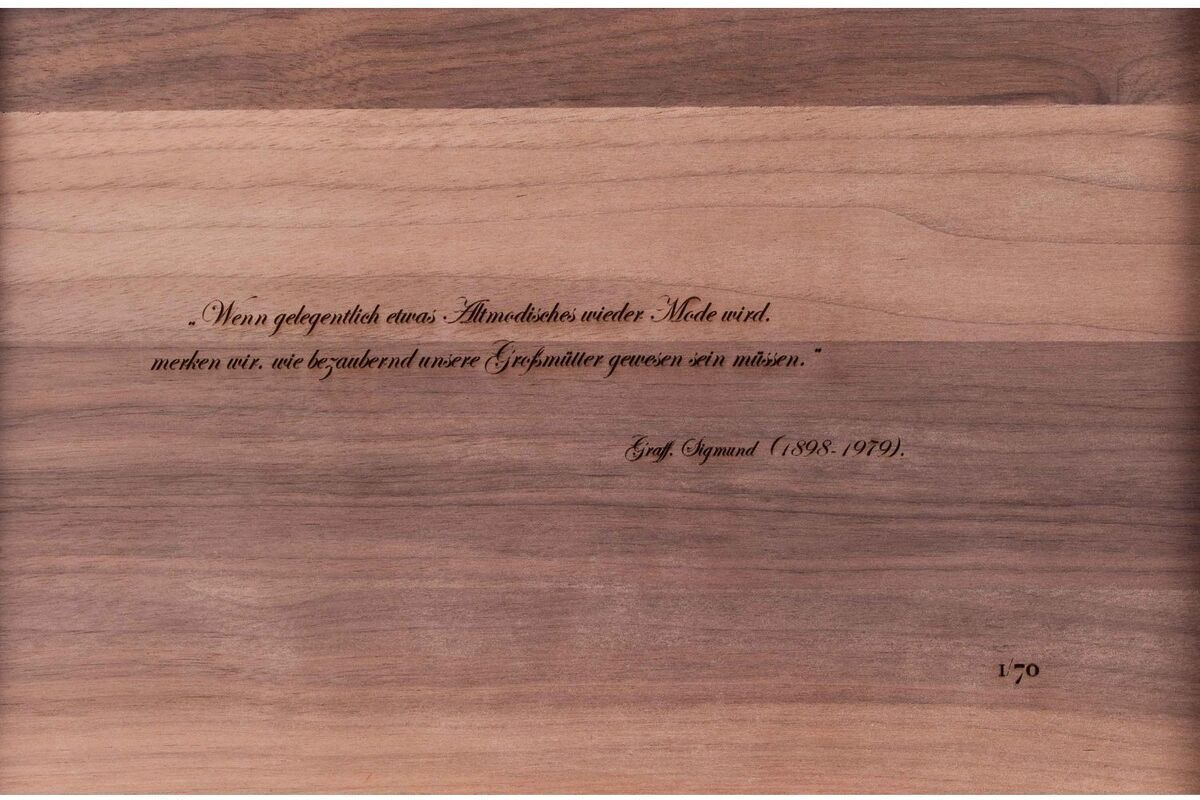 „Wenn gelegentlich etwas Altmodisches wieder Mode wird,
merken wir, wie bezaubernd unsere Großmütter gewesen sein müssen.“
Graff, Sigmund (1898-1979).
1/70